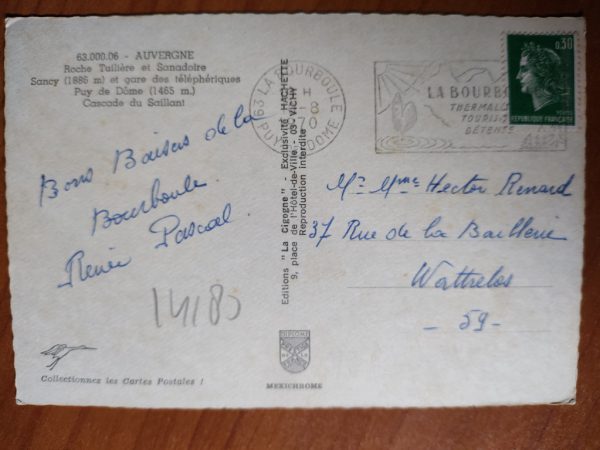 63.000.06 - AUVERGNE
Roche Tuilière et Sanadoire
Sancy (1886 m) et gare des téléphériques
Puy de Dôme (1465 m.)
Cascade du Saillant
Bons Baisers de la
Bourboule
Renée Pascal.
14/85
Collectionnez les Cartes Postales !
Editions "La Cigogne" - Exclusivité HACHETTE
9, place de l'Hôtel-de-Ville - 03-VICHY
Reproduction interdite
MEXICHROME
63 LA BOURBOULE
H
-8
70
PUY DOME
LA BOURB
THERMAL
TOURIS
DÉTENTE
0,30
REPUBLIQUE FRANÇAISE
Mr Mme Hector Renard
37 Rue de la Baillerie
Wattrelos
- 59 -